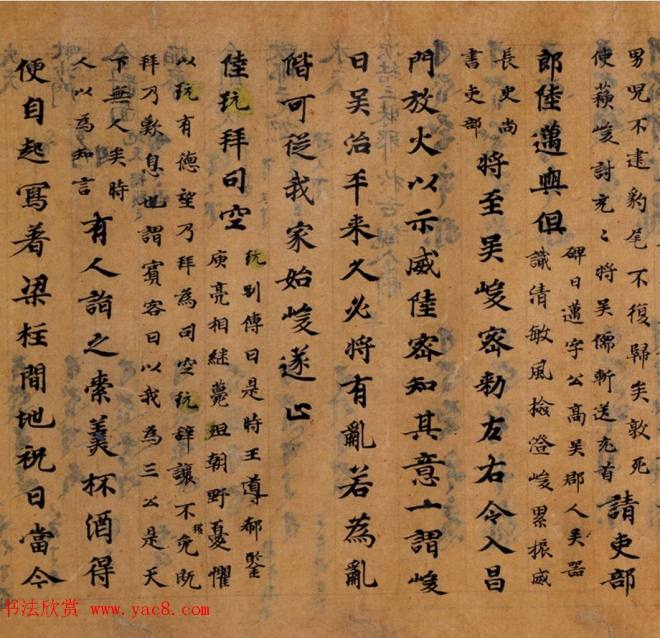 男児不建豹尾不復歸矣敦死
使蘓峻討充〻将吴儒斬送充首
請吏部
郎陸邁與俱
碑曰邁字公高吴郡人矣器
識清敏風檢澄峻累振威
長史尚
書吏部
将至吴峻密勑左右令入昌
門放火以示威陸密知其意亠謂峻
曰吴治平来久必将有亂若為亂
階可從我家始峻遂止
陸玩拜司空
玩别傳曰是時王導郗鑒
庾亮相継薨殂朝野憂懼
以玩有德望乃拜為司空玩辞讓不免既
拜乃歎息也謂賓客曰以我為三公是天
下無人矣時
人以為知言
有人詣之索美杯酒得
便自起寫着梁柱間地祝曰當今
书法欣赏 www.yac8.com